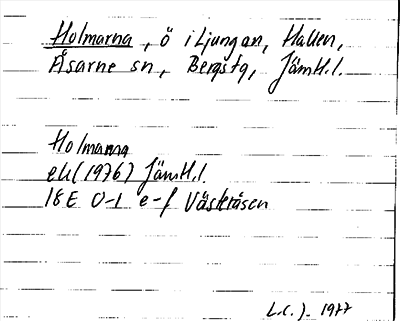 Holmarna, ö i Ljungan, Hallen,
Åsarne sn, Bergs tg, Jämtl.l.
Holmarna
ek (1976) Jämtl.l.
18E 0-1 e-f Västeråsen
L.C.J. 1977